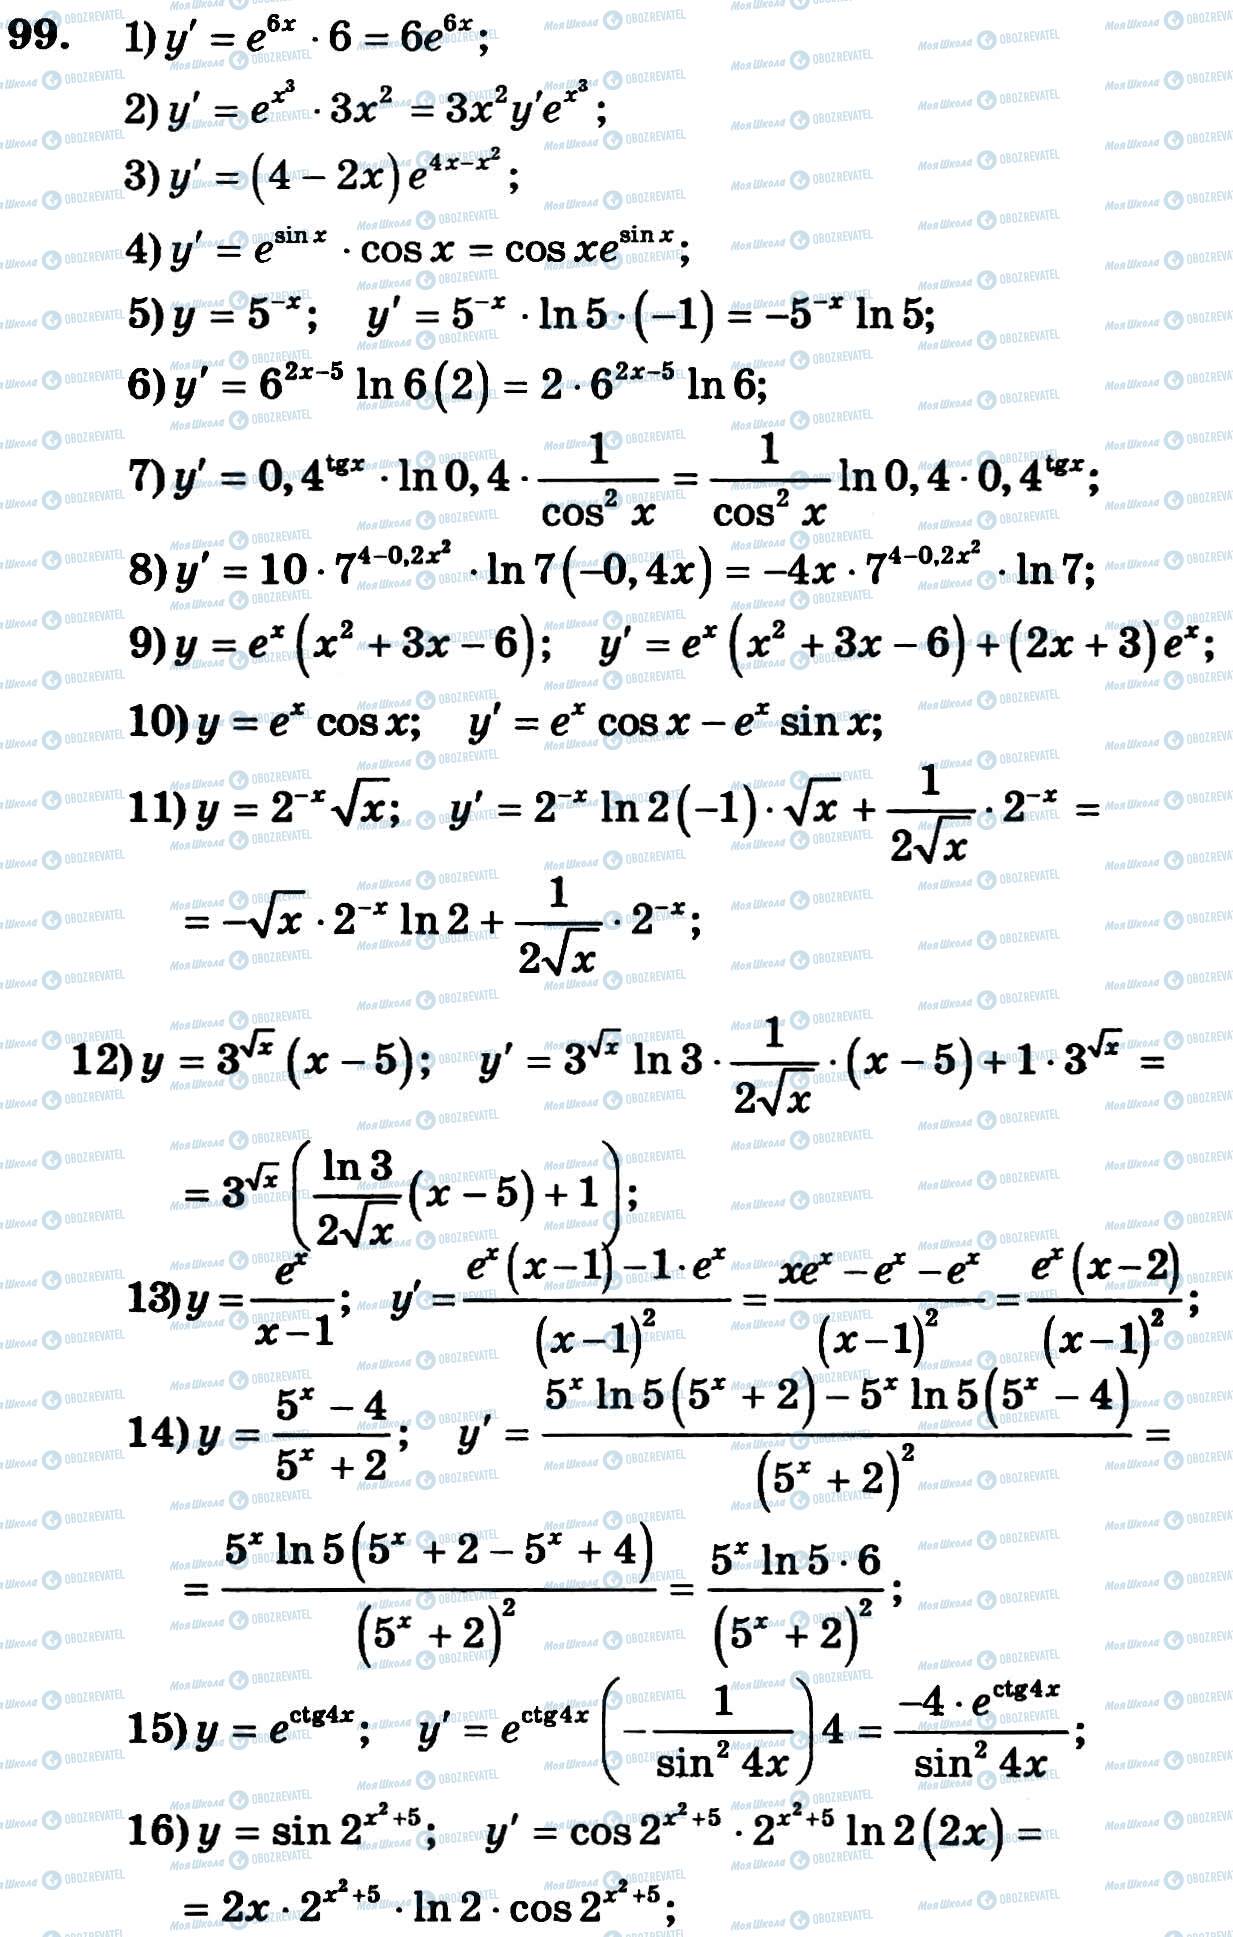 99. 1) y′ = e^{6x} · 6 = 6e^{6x};
2) y′ = e^{x³} · 3x² = 3x²y′e^{x³};
3) y′ = (4 – 2x)e^{4x–x²};
4) y′ = e^{sin x} · cos x = cos xe^{sin x};
5) y = 5^{–x}; y′ = 5^{–x} · ln 5 · (–1) = –5^{–x} ln 5;
6) y′ = 6^{2x–5} ln 6(2) = 2 · 6^{2x–5} ln 6;
7) y′ = 0,4^{tgx} · ln 0,4 · 1/(cos² x) = 1/(cos² x) ln 0,4 · 0,4^{tgx};
8) y′ = 10 · 7^{4–0,2x²} · ln 7(–0,4x) = –4x · 7^{4–0,2x²} · ln 7;
9) y = e^x(x² + 3x – 6); y′ = e^x(x² + 3x – 6) + (2x + 3)e^x;
10) y = e^x cos x; y′ = e^x cos x – e^x sin x;
11) y = 2^{–x}√x; y′ = 2^{–x} ln 2(–1) · √x + 1/(2√x) · 2^{–x} =
= –√x · 2^{–x} ln 2 + 1/(2√x) · 2^{–x};
12) y = 3^{√x}(x – 5); y′ = 3^{√x} ln 3 · 1/(2√x) · (x – 5) + 1 · 3^{√x} =
= 3^{√x}(ln 3/(2√x) (x – 5) + 1);
13) y = e^x/(x – 1); y′ = (e^x(x – 1) – 1 · e^x)/(x – 1)² = (xe^x – e^x – e^x)/(x – 1)² = e^x(x – 2)/(x – 1)²;
14) y = (5^x – 4)/(5^x + 2); y′ = (5^x ln 5(5^x + 2) – 5^x ln 5(5^x – 4))/(5^x + 2)² =
= 5^x ln 5(5^x + 2 – 5^x + 4)/(5^x + 2)² = (5^x ln 5 · 6)/(5^x + 2)²;
15) y = e^{ctg4x}; y′ = e^{ctg4x}(–1/(sin² 4x))4 = (–4 · e^{ctg4x})/(sin² 4x);
16) y = sin 2^{x²+5}; y′ = cos 2^{x²+5} · 2^{x²+5} ln 2(2x) =
= 2x · 2^{x²+5} · ln 2 · cos 2^{x²+5};
МояШкола OBOZREVATEL